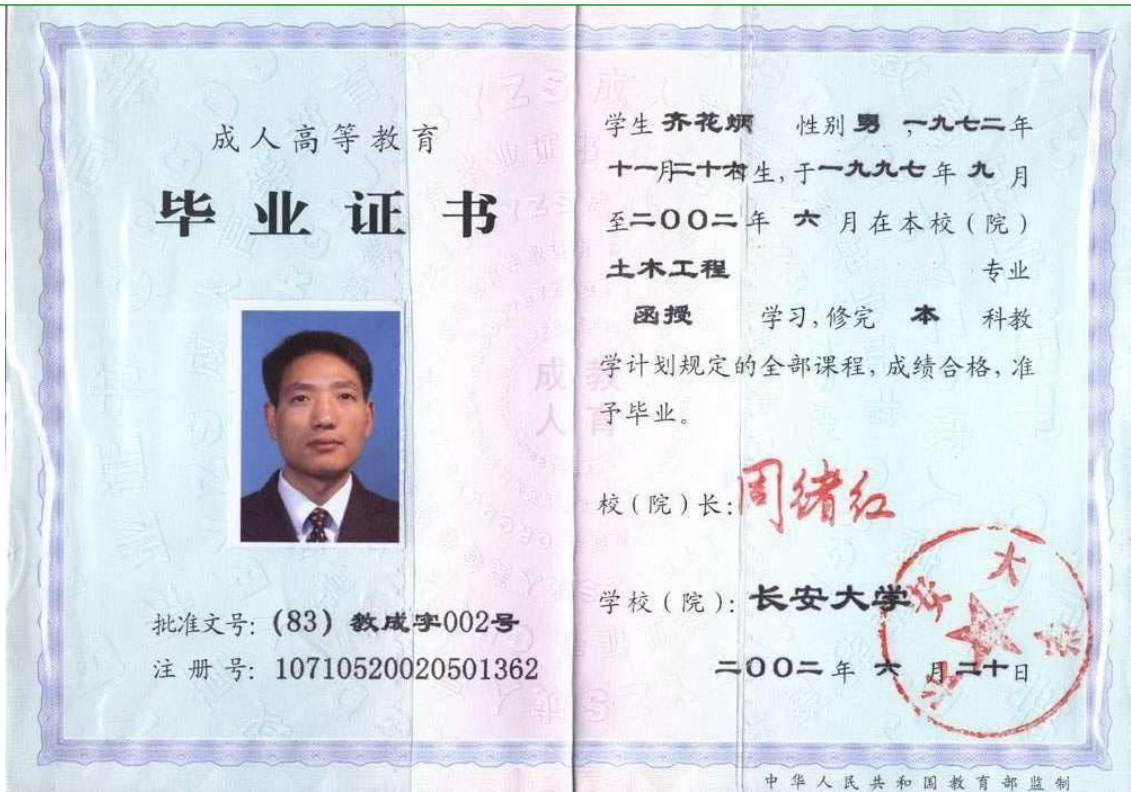 成人高等教育
毕业证书
批准文号: (83) 教成字002号
注册号: 10710520020501362
学生 齐花炳 性别 男 , 一九七二年
十一月二十 生, 于一九九七年 九 月
至二〇〇二年 六 月在本校(院)
土木工程 专业
函授 学习, 修完 本 科教
学计划规定的全部课程, 成绩合格, 准
予毕业。
校(院)长: 周绪红
学校(院): 长安大学
二〇〇二年 六 月二十日
中华人民共和国教育部监制
成教
人育